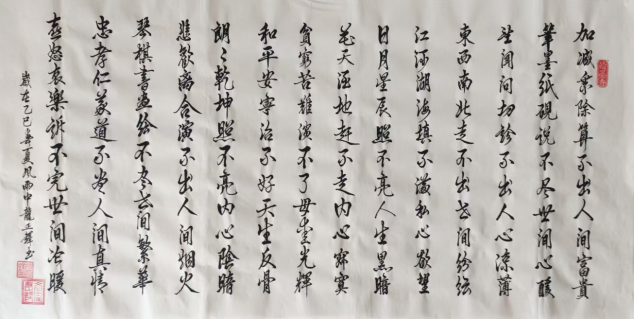 加减乘除算不出人间富貴
筆墨纸硯说不尽世间心酸
望闻问切診不出人心凉薄
東西南北走不出世间纷纭
江河湖海填不满私心欲望
日月星辰照不亮人生黑暗
花天酒地赶不走内心寂寞
貧窮苦難演不了母愛光輝
和平安寧治不好天生反骨
朗朗乾坤照不亮内心陰暗
悲歡离合演不出人间烟火
琴棋書画绘不尽世间繁華
忠孝仁義道不尽人间真情
喜怒哀樂诉不完世间冷暖
歲在乙巳年夏風雨中龍正辉書